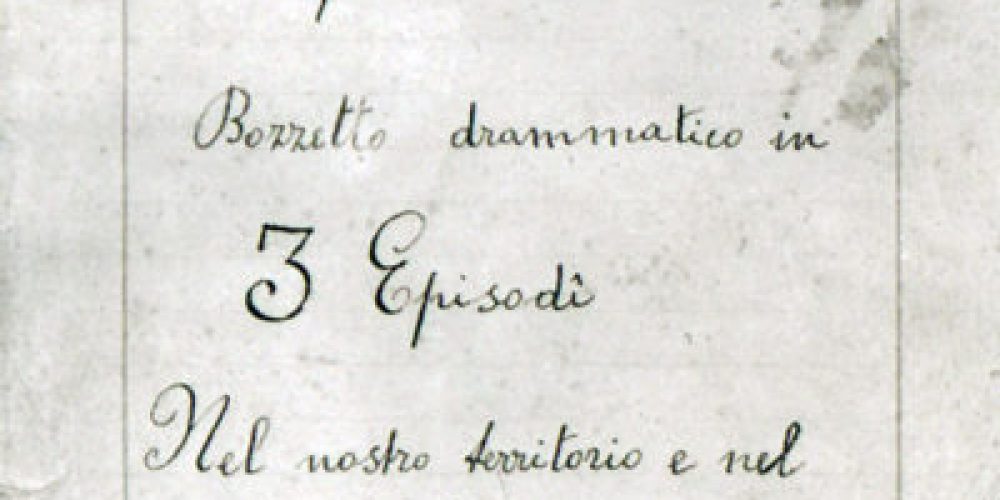 Bozzetto drammatico in
3 Episodî
Nel nostro territorio e nel